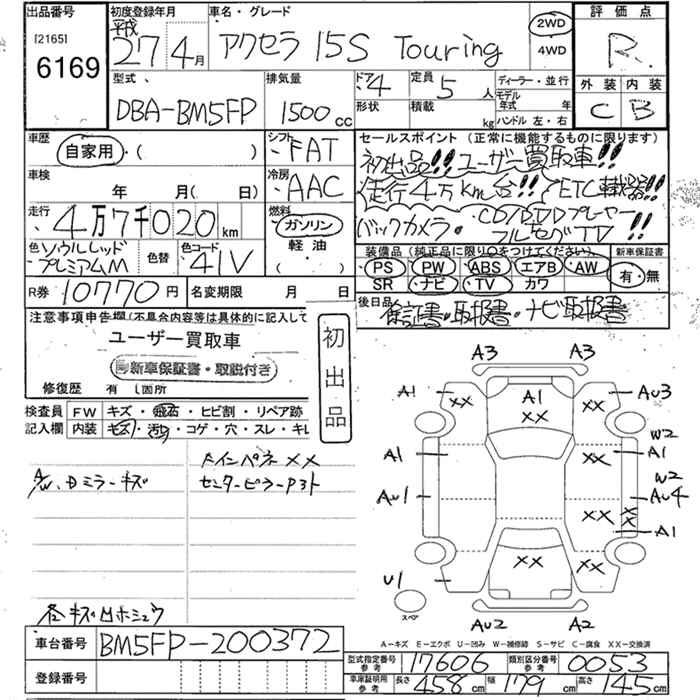 出品番号
[2165]
6169
初度登録年月
平成
27年4月
車名・グレード
アクセラ 15S Touring
2WD
4WD
評価点
R
外装 内装
C B
型式
DBA-BM5FP
排気量
1500cc
ドア 4
形状
定員 5人
積載 kg
ディーラー・並行
モデル年式 年
ハンドル 左・右
車歴
自家用・( )
シフト FAT
車検
年 月( 日)
冷房 AAC
走行
4万7千020km
燃料
ガソリン
軽油
( )
色 ソウルレッドプレミアムM
色替
色コード 41V
R券 10770円
名変期限 月 日
セールスポイント(正常に機能するものに限ります)
初出品!! ユーザー買取車!!
走行4万km台!! ETC車載器!!
バックカメラ・CD/DVDプレーヤー
フルセグTV!!
装備品(純正品に限り○をつけてください)
PS PW ABS エアB AW
SR ナビ TV カワ
新車保証書
有・無
後日品
保証書・取扱書・ナビ取扱書
注意事項申告欄(不具合内容等は具体的に記入して
ユーザー買取車
新車保証書・取説付き
修復歴 有( 箇所
初出品
検査員 FW キズ・飛石・ヒビ割・リペア跡
記入欄 内装 キズ・汚れ・コゲ・穴・スレ・キレ
A/W、Dミラーキズ
ドインパネXX
センターピラーP3ト
キズ凹ホシュウ
A3 A3
A1 XX A1 XX XX AU3
W2
A1 XX A1
W2
AW1 AU4
XX XX
A1
U1 XX XX
スペア
AU2 A2
A-キズ E-エクボ U-凹み W-補修跡 S-サビ C-腐食 XX-交換済
車台番号 BM5FP-200372
登録番号
型式指定番号 参考 17606
類別区分番号 参考 0053
車庫証明用 参考
長さ 458cm 幅 179cm 高さ 145cm